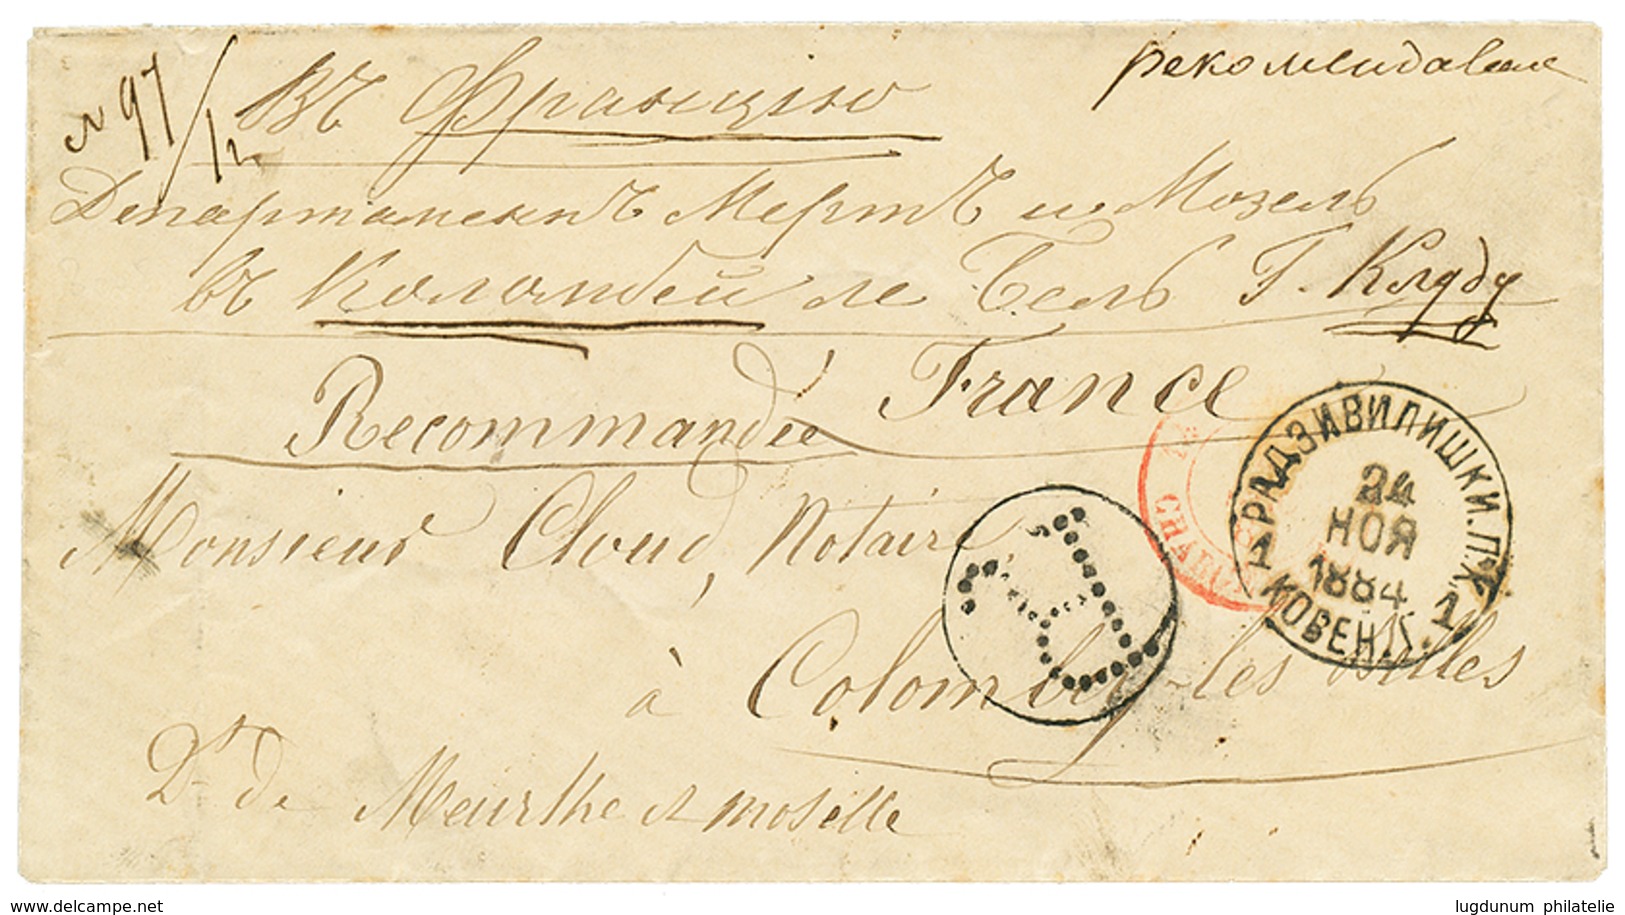 № 97/12
въ Францію
рекомендавале
Департаментъ Мертъ и Мозель
въ Коломбей ле Бель Г. Клуду
France
Recommandée
Monsieur Cloud, Notaire,
à Colombey-les Belles
Dt de Meurthe et moselle
РАДЗИВИЛИШКИ. П.К.
24
НОЯ
1884
1 КОВЕН. Г. 1
delcampe.net
lugdunum philatelie